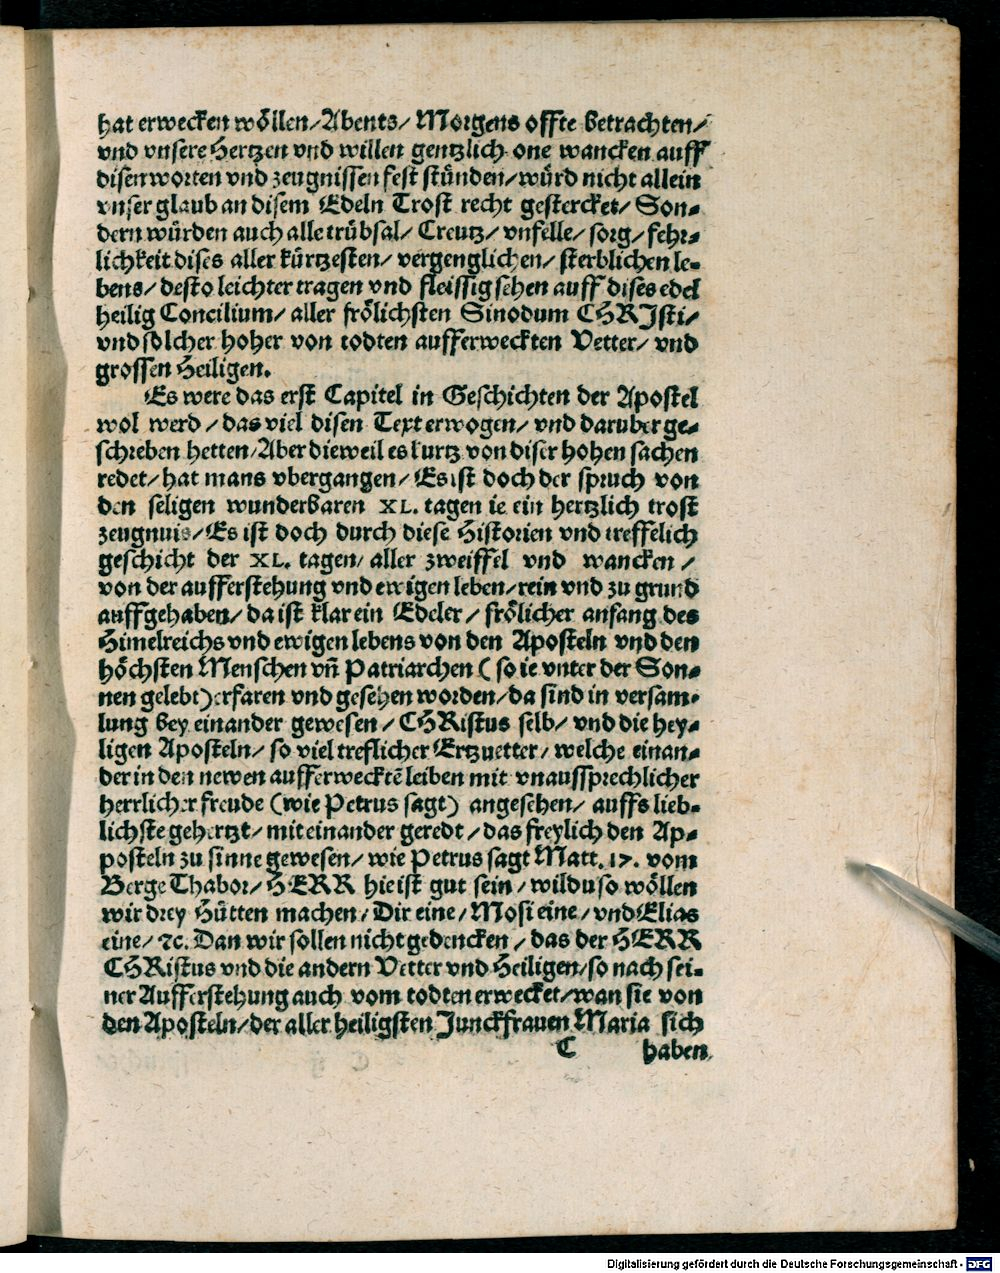 hat erwecken wöllen/Abents/ Morgens offte betrachten/
vnd vnsere Hertzen vnd willen gentzlich one wancken auff
disen worten vnd zeugnissen fest stünden/würd nicht allein
vnser glaub an disem Edeln Trost recht gestercket/ Son-
dern würden auch alle trübsal/ Creutz/ vnfelle/ sorg/ fehr-
lichkeit dises aller kürtzesten/ vergenglichen/ sterblichen le-
bens/ desto leichter tragen vnd fleissig sehen auff dises edel
heilig Concilium/ aller frölichsten Sinodum CHRJsti/
vnd solcher hoher von todten aufferweckten Vetter/ vnd
grossen Heiligen.
Es were das erst Capitel in Geschichten der Apostel
wol werd / das viel disen Text erwogen/ vnd daruber ge-
schrieben hetten/Aber dieweil es kurtz von diser hohen sachen
redet/ hat mans vbergangen/ Es ist doch der spruch von
den seligen wunderbaren XL. tagen ie ein hertzlich trost
zeugnuis/Es ist doch durch diese Historien vnd treffelich
geschicht der XL. tagen/ aller zweiffel vnd wancken /
von der aufferstehung vnd ewigen leben/rein vnd zu grund
auffgehaben/ da ist klar ein Edeler/ frölicher anfang des
Himelreichs vnd ewigen lebens von den Aposteln vnd den
höchsten Menschen vñ Patriarchen ( so ie vnter der Son-
nen gelebt)erfaren vnd gesehen worden/da sind in versam-
lung bey einander gewesen / CHRistus selb/ vnd die hey-
ligen Aposteln/ so viel treflicher Ertzuetter/ welche einan-
der in den newen aufferwecktē leiben mit vnaussprechlicher
herrlicher freude (wie Petrus sagt) angesehen/ auffs lieb-
lichste gehertzt/ mit einander geredt / das freylich den Ap-
posteln zu sinne gewesen/ wie Petrus sagt Matt. 17. vom
Berge Thabor/ HERR hie ist gut sein/ wildu so wöllen
wir drey Hütten machen/ Dir eine/ Mosi eine/ vnd Elias
eine/ ꝛc. Dan wir sollen nicht gedencken / das der HERR
CHRistus vnd die andern Vetter vnd Heiligen/so nach sei-
ner Aufferstehung auch vom todten erwecket/wan sie von
den Aposteln/der aller heiligsten Junckfrauen Maria sich
C haben
Digitalisierung gefördert durch die Deutsche Forschungsgemeinschaft - DFG